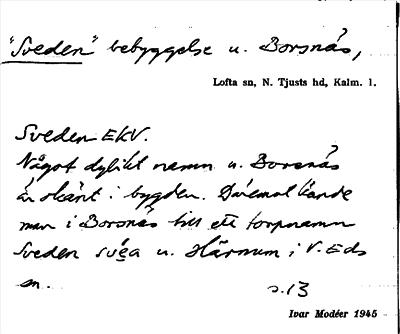 "Sveden" bebyggelse u. Borsnäs,
Lofta sn, N. Tjusts hd, Kalm. l.
Sveden EKV.
Något dylikt namn u. Borsnäs
är okänt i bygden. Däremot kände
man i Borsnäs till ett torpnamn
Sveden u. Härnum i V. Eds
sn. s. 13
Ivar Modéer 1945